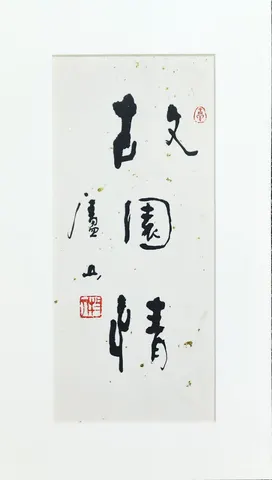 故園情
廬山